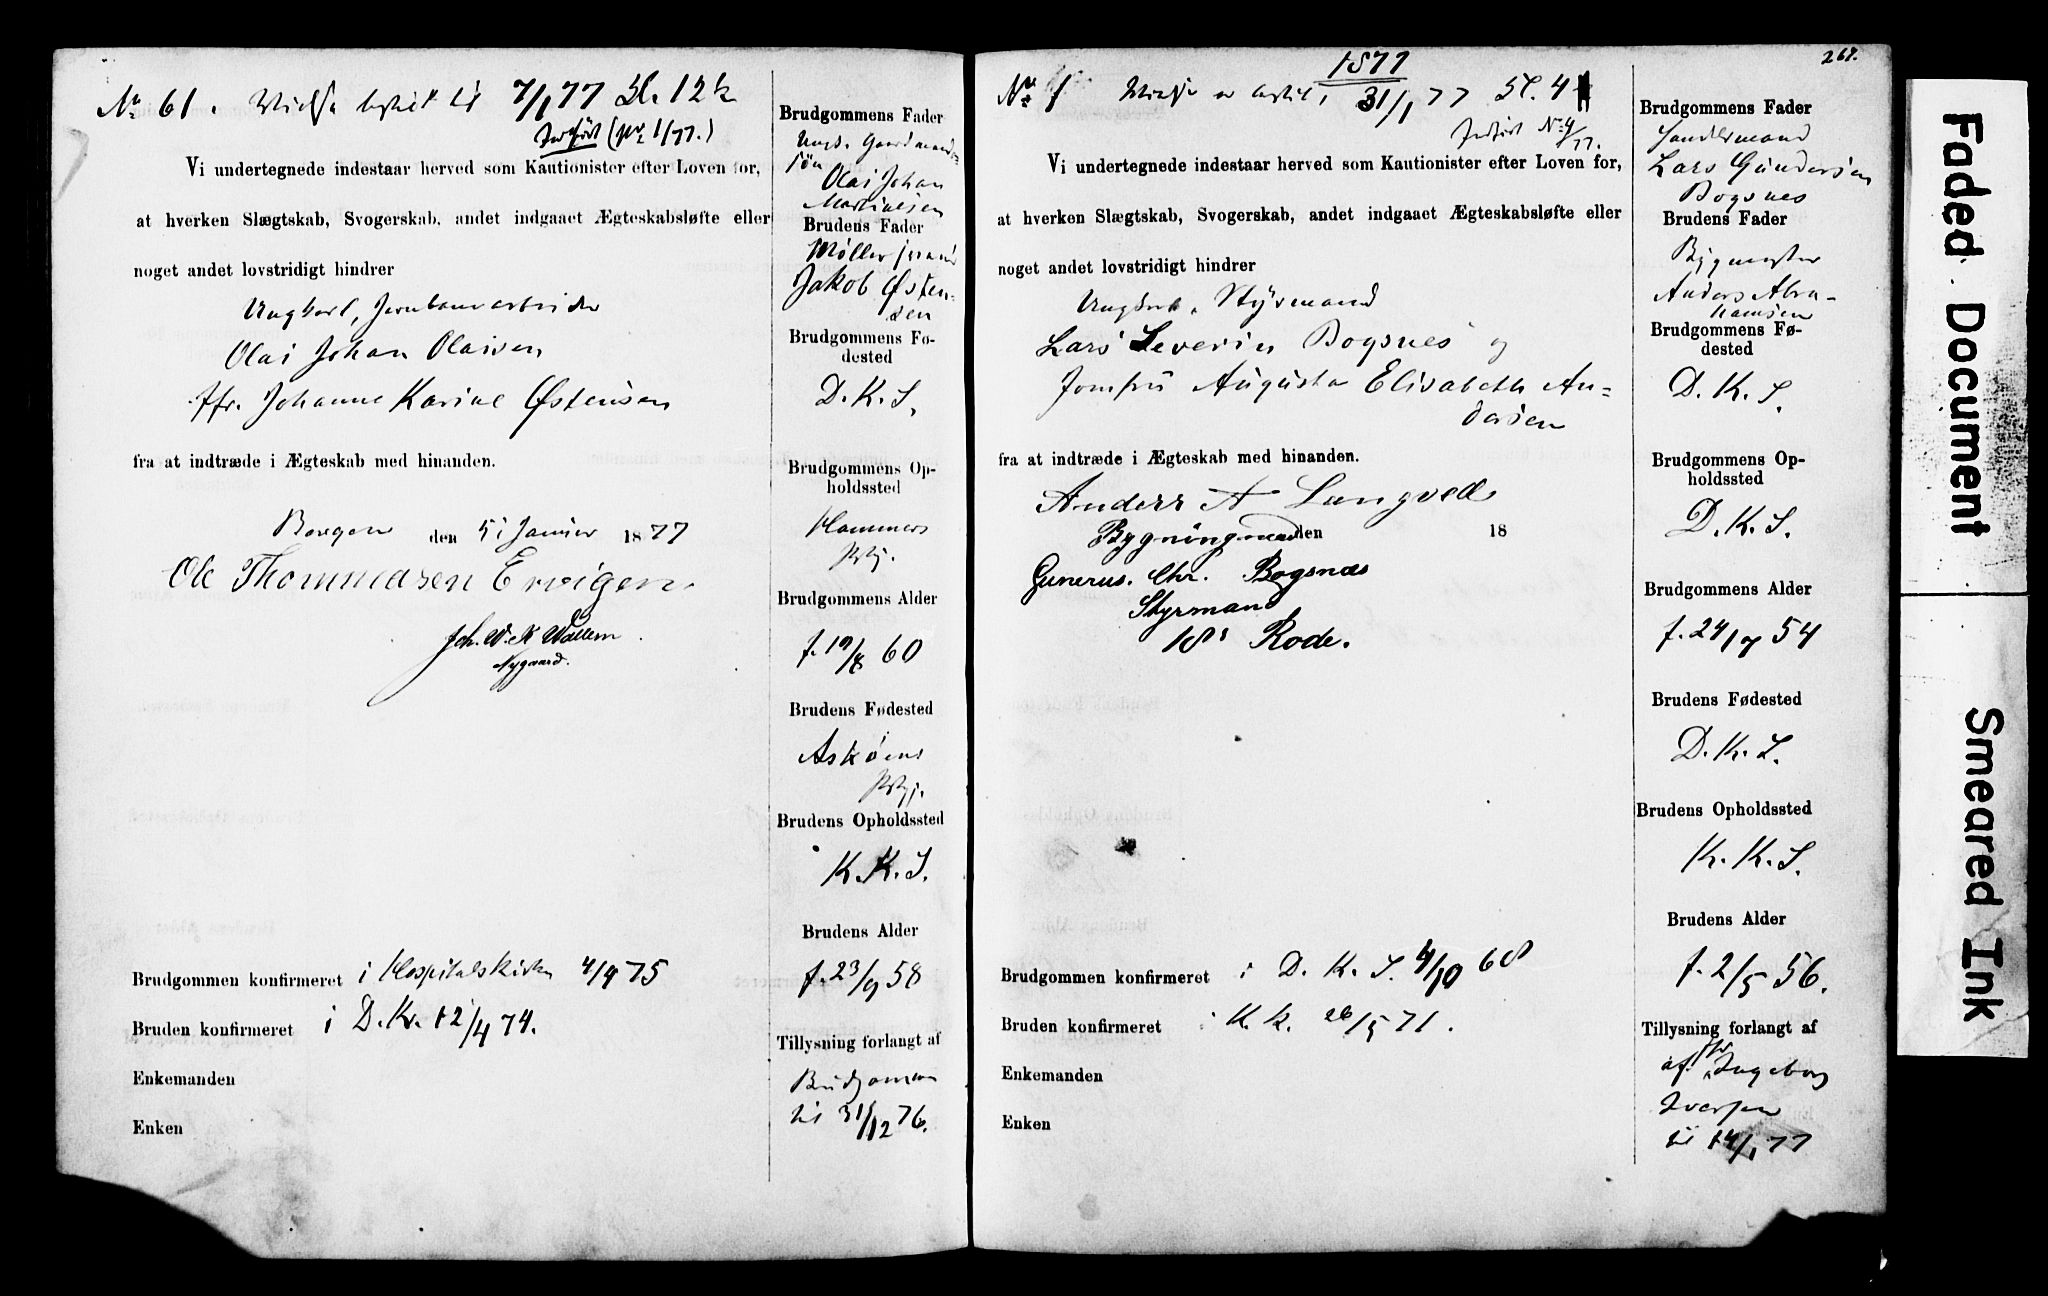 No 61. Vielse bestilt til 7/1 77 Kl. 12 1/2
Indført (No 1/77.)
Vi undertegnede indestaar herved som Kautionister efter Loven for,
at hverken Slægtskab, Svogerskab, andet indgaaet Ægteskabsløfte eller
noget andet lovstridigt hindrer
Ungkarl, Jernbanearbeider
Olai Johan Olaisen
Jfr. Johanne Karine Østensen
fra at indtræde i Ægteskab med hinanden.
Bergen den 5 Januar 1877
Ole Thommasen Ervigen
Joh. W. K Wallem
Nygaard.
Brudgommen konfirmeret i Hospitalskirken 4/4 75
Bruden konfirmeret i D. K. 12/4 74.
Enkemanden
Enken
Brudgommens Fader
Olai Johan
Martinsen
Brudens Fader
Møllersvend
Jakob Østen-
sen
Brudgommens Fø-
dested
D. K. S.
Brudgommens Op-
holdssted
Hammers
Brudgommens Alder
f. 19/8 60
Brudens Fødested
Askøens
Brudens Opholdssted
K. K. S.
Brudens Alder
f. 23/9 58
Tillysning forlangt af
Brudgommen
til 31/12 76.
267.
1877
No 1 Vielse er bestilt, 31/1 77 Kl. 4
Indført No 4/77.
Vi undertegnede indestaar herved som Kautionister efter Loven for,
at hverken Slægtskab, Svogerskab, andet indgaaet Ægteskabsløfte eller
noget andet lovstridigt hindrer
Ungkarl, Styrmand
Lars Severin Bogsnes og
Jomfru Augusta Elisabeth An-
dersen
fra at indtræde i Ægteskab med hinanden.
Anders A Langvell
den 18
Gunerus. Chr. Bogsnæs
Styrmand
18de Rode.
Brudgommen konfirmeret i D. K. S. 4/10 68
Bruden konfirmeret i K. K. 26/5 71.
Enkemanden
Enken
Brudgommens Fader
Lars Gundersen
Bogsnes
Brudens Fader
Bygmester
Anders Abra-
hamsen
Brudgommens Fø-
dested
D. K. S.
Brudgommens Op-
holdssted
D. K. S.
Brudgommens Alder
f. 24/7 54
Brudens Fødested
D. K. S.
Brudens Opholdssted
K. K. S.
Brudens Alder
f. 2/5 56.
Tillysning forlangt af
af Jfr Ingeborg
Iversen
til 14/1 77
Faded Document
Smeared Ink